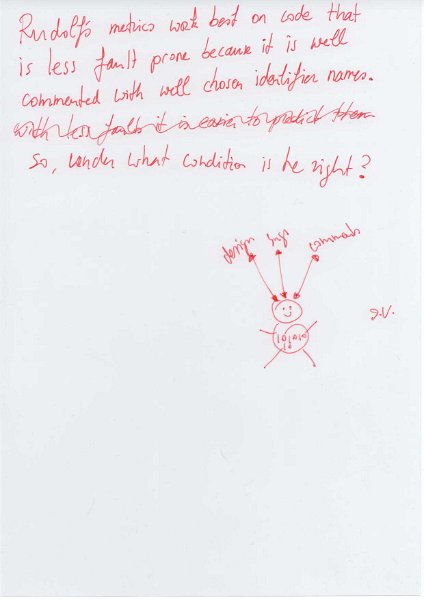 Rudolf's metrics work best on code that
is less fault prone because it is well
commented with well chosen identifier names.
with less faults it is easier to predict them
So, under what condition is he right?
design bugs comments